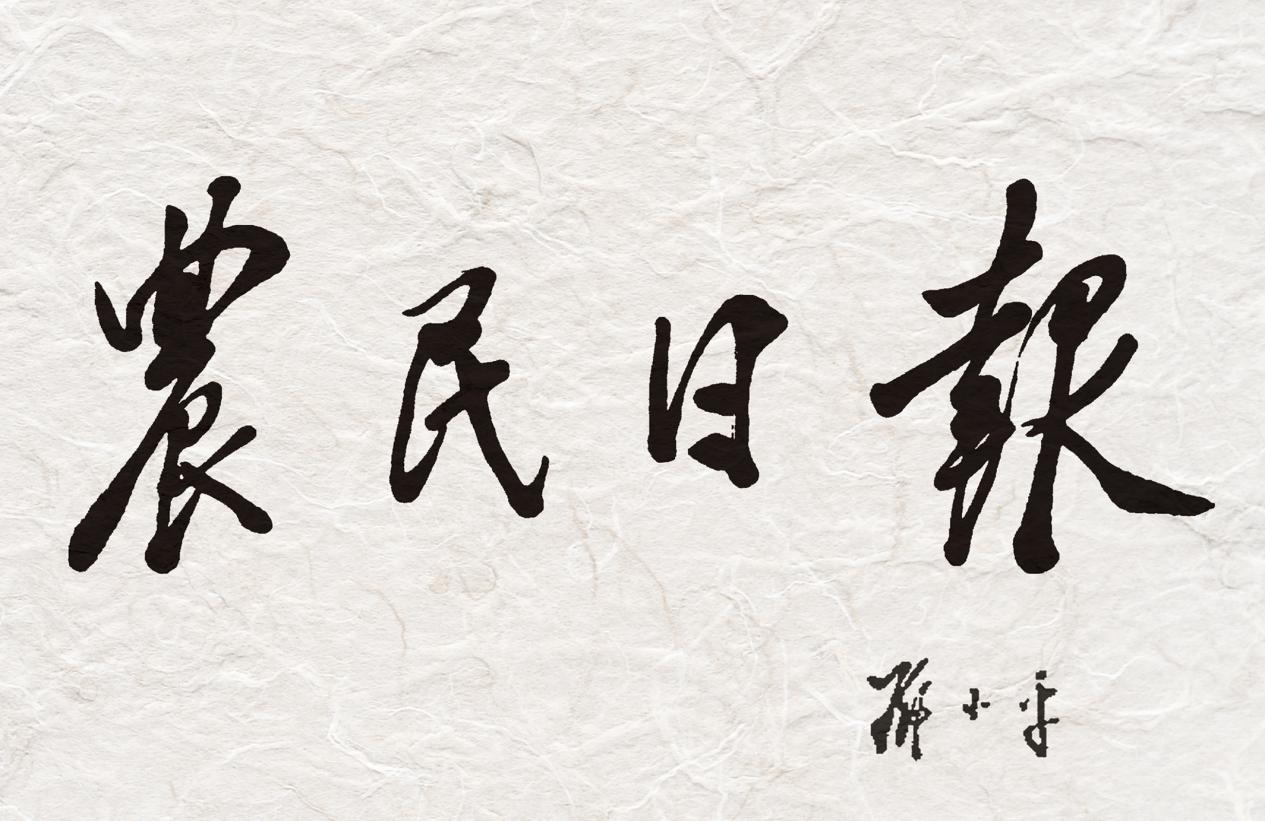 農民日報
鄧小平